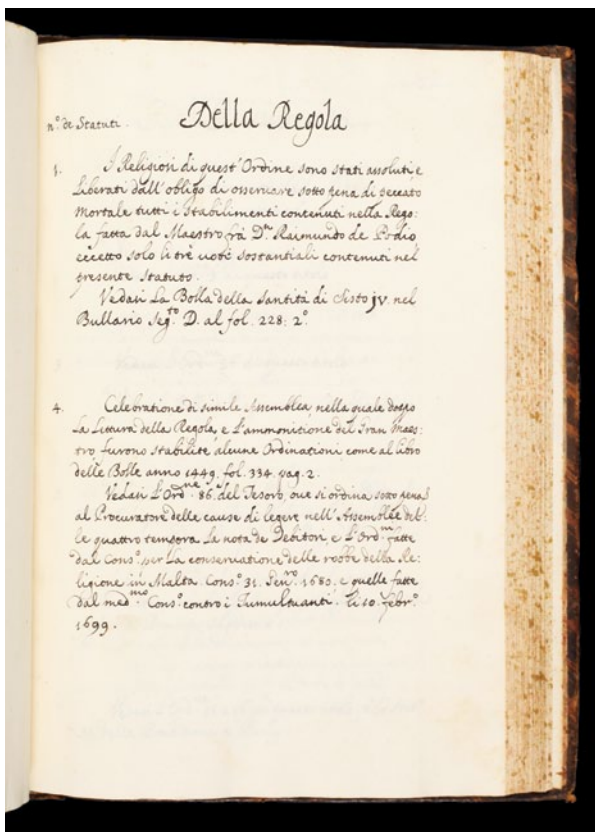 Della Regola
n.º de Statuti.
1. I Religiosi di quest'Ordine sono stati assoluti, e
Liberati dall'obligo di osservare sotto pena di peccato
mortale tutti i Stabilimenti contenuti nella Rego:
la fatta dal Maestro frà D.n Raimundo de Podio
eccetto solo li trè voti sostantiali contenuti nel
presente Statuto.
Vedasi La Bolla della Santità di Sisto jv. nel
Bullario Seg.to D. al fol. 228: 2º.
4. Celebratione di simile Assemblea, nella quale doppo
La Lettura della Regola, e l'ammonitione del Gran Maes:
tro furono stabilite alcune Ordinationi come al libro
delle Bolle anno 1449. fol. 334. pag. 2.
Vedasi l'Ord.ne 86. del Tesoro, ove si ordina sotto pena
al Procuratore delle cause di legere nell'Assemblee del:
le quattro tempora La nota de Debitori, e l'Ord.ni fatte
dal Cons.º per La conservatione delle robbe della Re:
ligione in Malta. Cons.º 31. Gen.ro 1680. e quelle fatte
dal med.mo Cons.º contro i Tumultuanti. li 10. febr.º
1699.